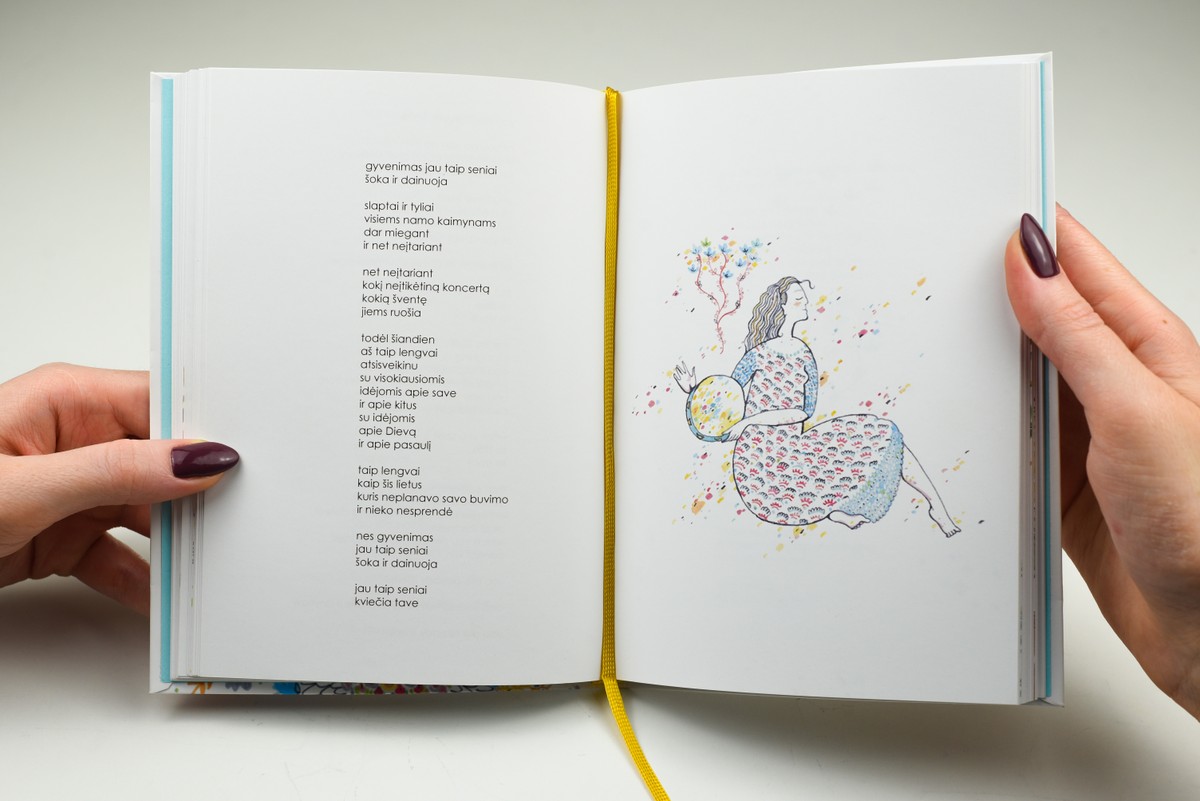 gyvenimas jau taip seniai
šoka ir dainuoja
slaptai ir tyliai
visiems namo kaimynams
dar miegant
ir net neįtariant
net neįtariant
kokį neįtikėtiną koncertą
kokią šventę
jiems ruošia
todėl šiandien
aš taip lengvai
atsisveikinu
su visokiausiomis
idėjomis apie save
ir apie kitus
su idėjomis
apie Dievą
ir apie pasaulį
taip lengvai
kaip šis lietus
kuris neplanavo savo buvimo
ir nieko nesprendė
nes gyvenimas
jau taip seniai
šoka ir dainuoja
jau taip seniai
kviečia tave